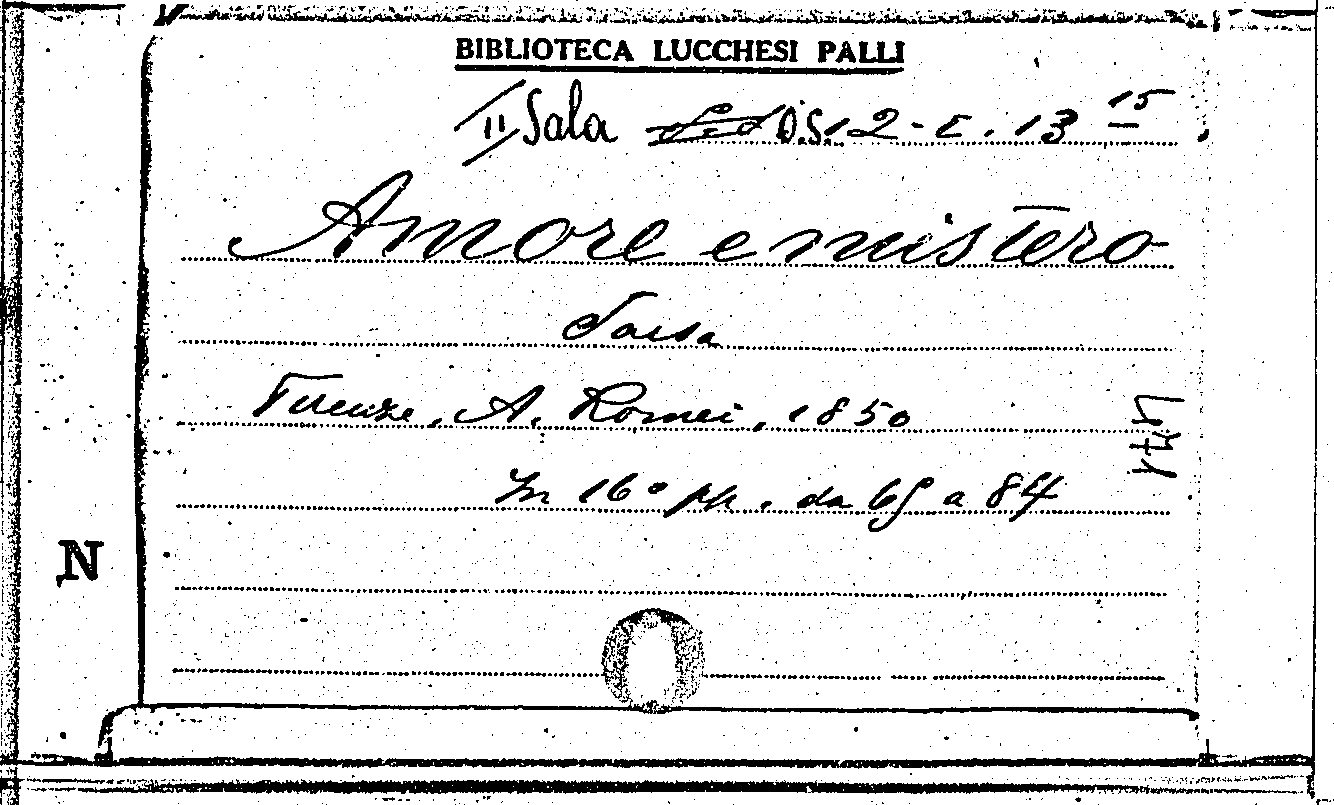 BIBLIOTECA LUCCHESI PALLI
II Sala D.S. 12-E.13 15
Amore e mistero
Farsa
Firenze, A. Romei, 1850
In 16° pp. da 65 a 84
N